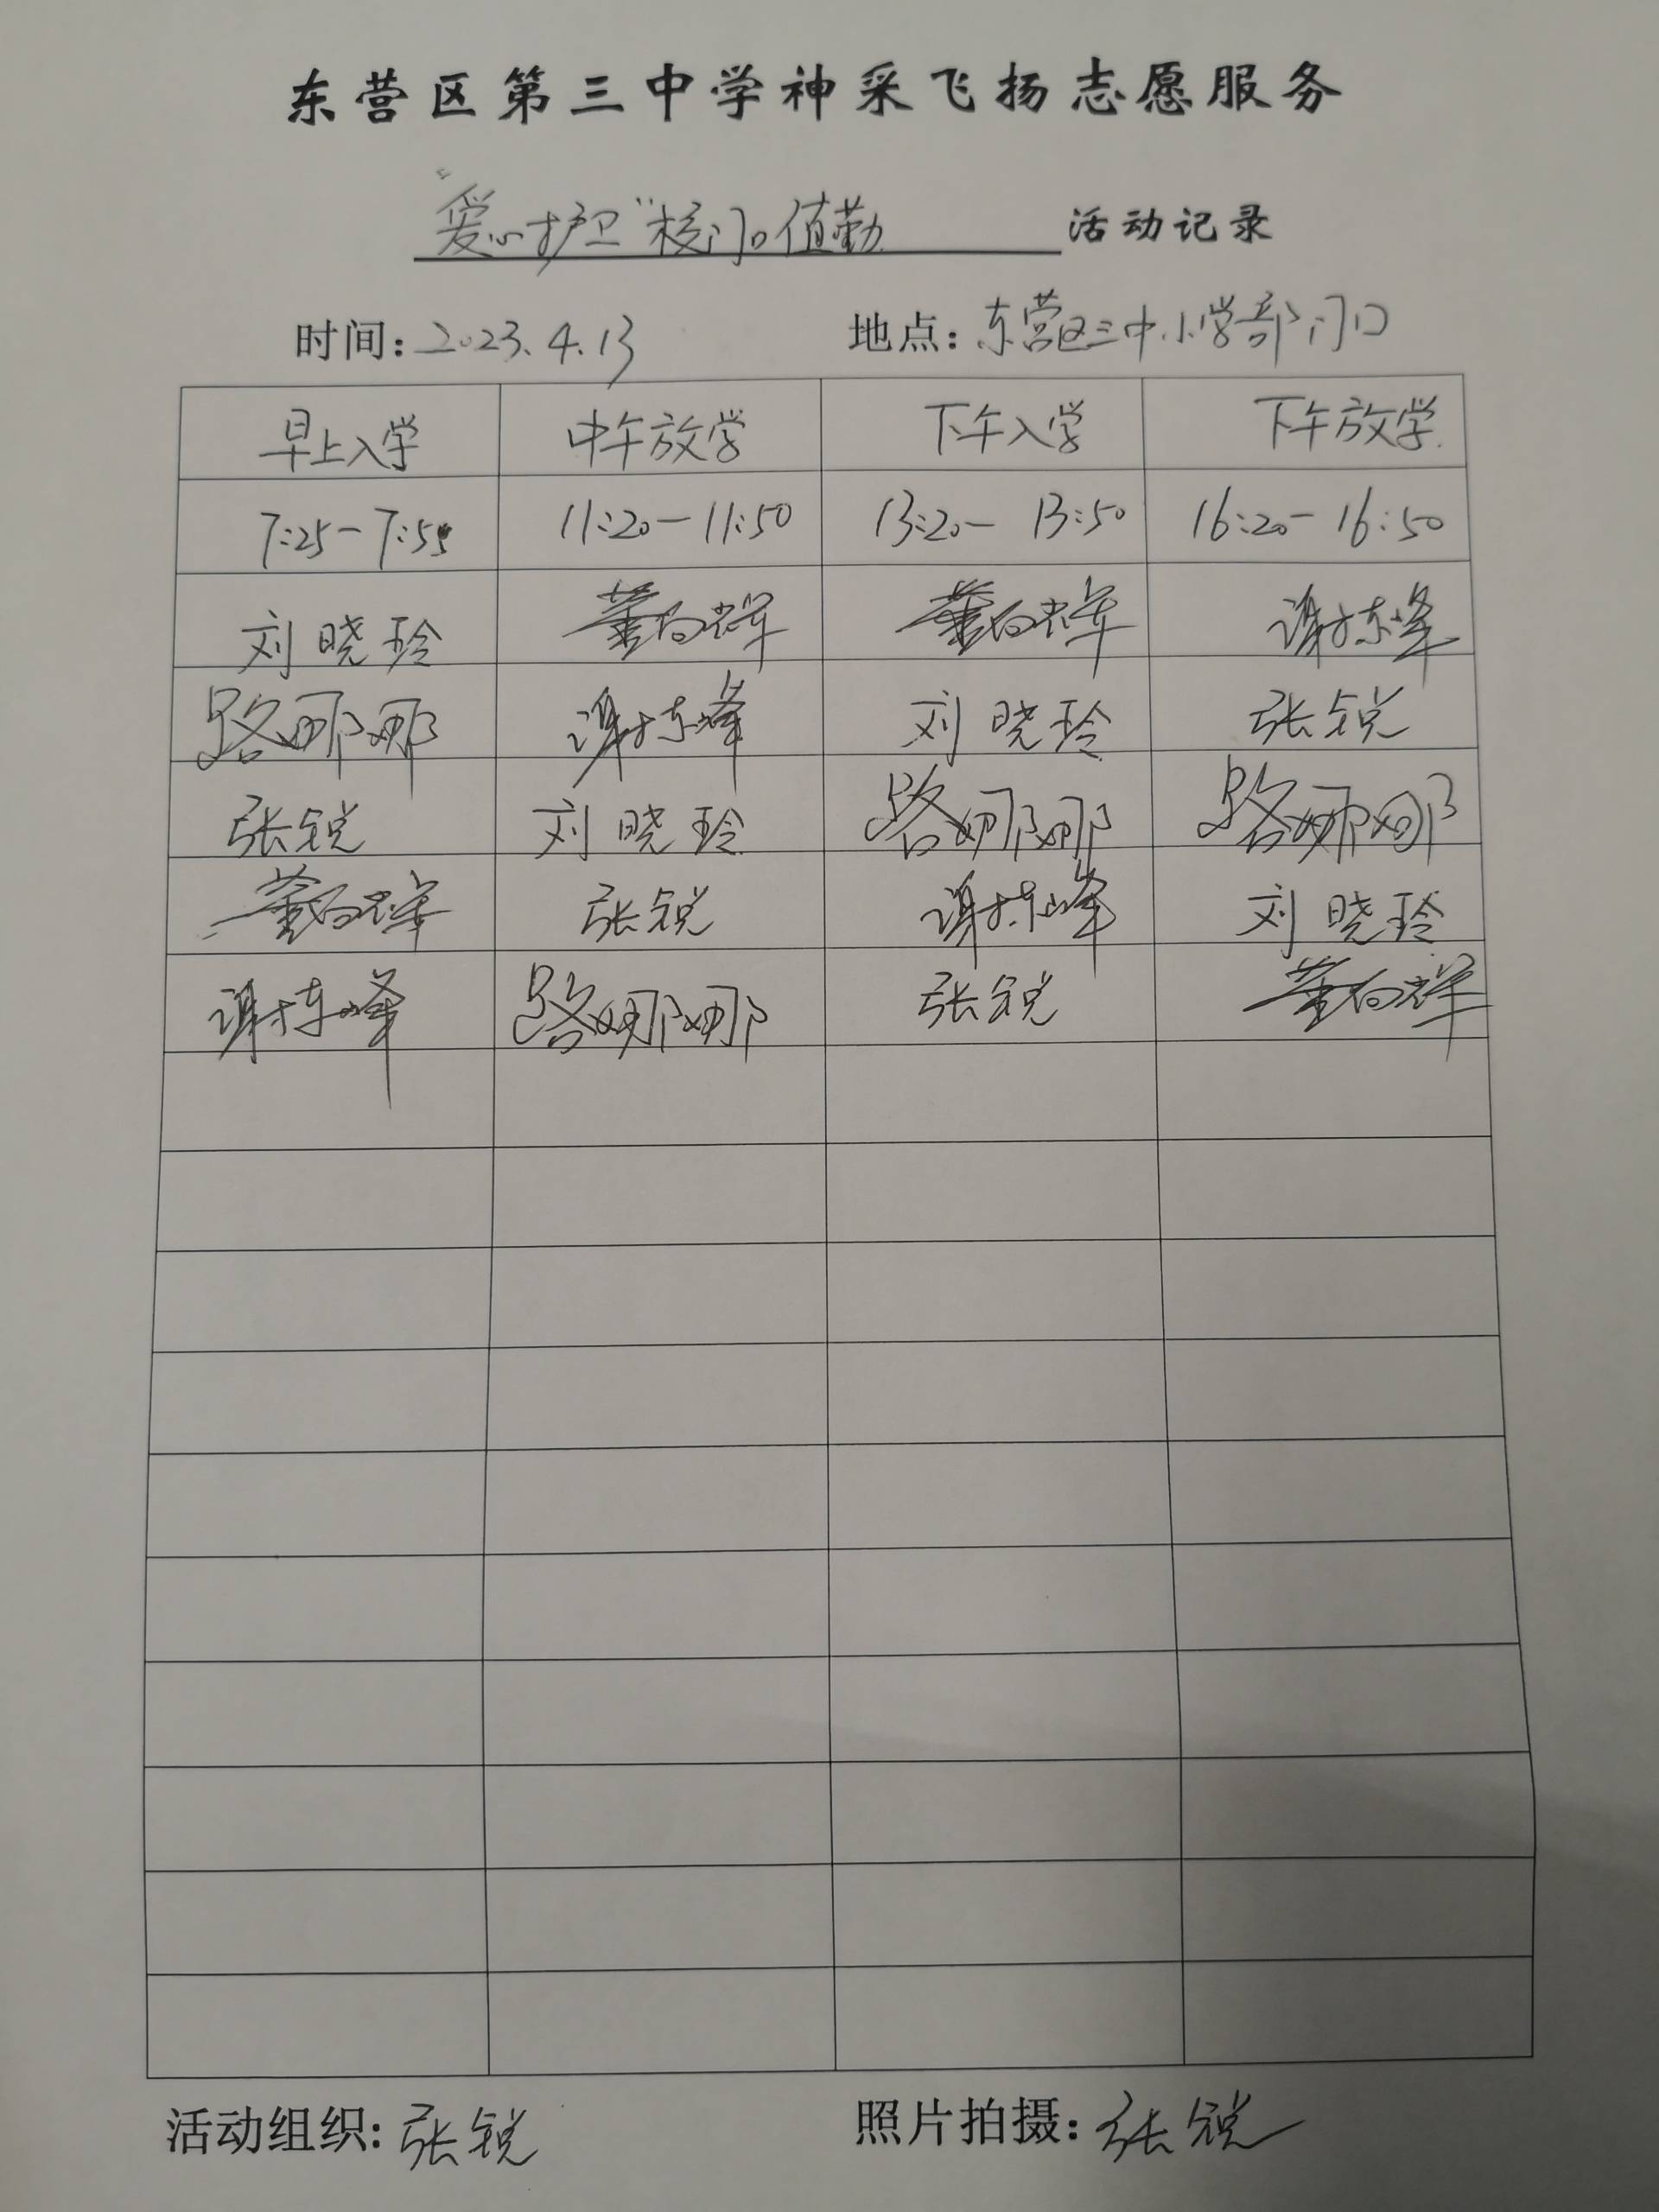 东营区第三中学神采飞扬志愿服务
“爱心护卫”校门口值勤 活动记录
时间:2023.4.13 地点:东营区三中小学部门口
早上入学 中午放学 下午入学 下午放学
7:25-7:55 11:20-11:50 13:20-13:50 16:20-16:50
刘晓玲 董向群 董向群 谢栋峰
路娜娜 谢栋峰 刘晓玲 张锐
张锐 刘晓玲 路娜娜 路娜娜
董向群 张锐 谢栋峰 刘晓玲
谢栋峰 路娜娜 张锐 董向群
活动组织:张锐 照片拍摄:张锐